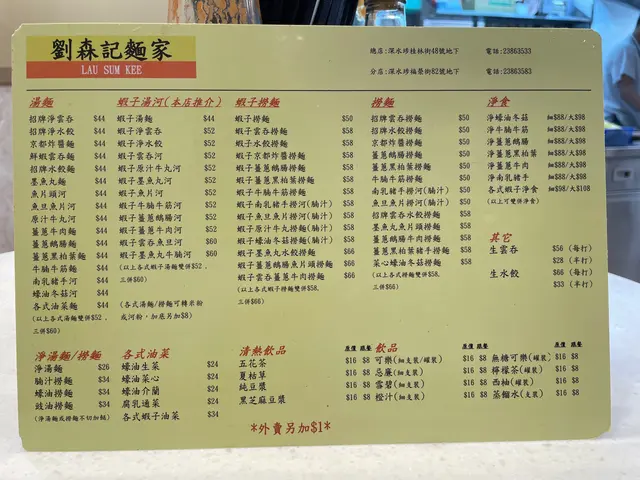 劉森記麵家
LAU SUM KEE
總店:深水埗桂林街48號地下 電話:23863533
分店:深水埗福榮街82號地下 電話:23863583
湯麵
招牌淨雲吞 $44
招牌淨水餃 $44
京都炸醬麵 $44
鮮蝦雲吞麵 $44
招牌水餃麵 $44
墨魚丸麵 $44
魚片頭河 $44
魚旦魚片河 $44
原汁牛丸河 $44
薑蔥牛肉麵 $44
薑蔥鵝腸麵 $44
薑蔥黑柏葉麵 $44
牛腩牛筋麵 $44
南乳豬手河 $44
蠔油冬菇河 $44
各式油菜麵 $44
(以上各式湯麵雙併$52,
三併$60)
蝦子湯河(本店推介)
蝦子湯麵 $44
蝦子淨雲吞 $52
蝦子淨水餃 $52
蝦子雲吞河 $52
蝦子原汁牛丸河 $52
蝦子墨魚丸河 $52
蝦子魚片頭河 $52
蝦子牛腩牛筋河 $52
蝦子魚旦魚片河 $52
蝦子薑蔥鵝腸河 $52
蝦子薑蔥牛肉河 $52
蝦子雲吞魚旦河 $60
蝦子雲吞牛丸河 $60
(以上各式蝦子湯麵雙併$52,
三併$60)
(各式湯麵/撈麵可轉米粉
或河粉,加底另加$8)
蝦子撈麵
蝦子撈麵 $50
蝦子雲吞撈麵 $58
蝦子水餃撈麵 $58
蝦子京都炸醬撈麵 $58
蝦子薑蔥鵝腸撈麵 $58
蝦子薑蔥黑柏葉撈麵 $58
蝦子牛腩牛筋撈麵 $58
蝦子南乳豬手撈河(腩汁) $58
蝦子魚旦魚片撈河(腩汁) $58
蝦子原汁牛丸撈麵(腩汁) $58
蝦子蠔油冬菇撈麵(腩汁) $58
蝦子墨魚丸水餃撈麵 $66
蝦子薑蔥鵝腸魚片頭撈麵 $66
蝦子雲吞薑蔥牛肉撈麵 $66
(以上各式蝦子撈麵雙併$58,
三併$66)
撈麵
招牌雲吞撈麵 $50
招牌水餃撈麵 $50
京都炸醬撈麵 $50
薑蔥鵝腸撈麵 $50
薑蔥黑柏葉撈麵 $50
牛腩牛筋撈麵 $50
南乳豬手撈河(腩汁) $50
魚旦魚片撈河(腩汁) $50
招牌雲吞水餃撈麵 $58
墨魚丸魚片頭撈麵 $58
薑蔥牛肉鵝腸撈麵 $58
薑蔥黑柏葉豬手撈麵 $58
菜心蠔油冬菇撈麵 $58
(以上各式撈麵雙併$58,
三併$66)
淨食
淨蠔油冬菇 細$88/大$98
淨牛腩牛筋 細$88/大$98
淨薑蔥鵝腸 細$88/大$98
淨薑蔥黑柏葉 細$88/大$98
淨薑蔥牛肉 細$88/大$98
淨南乳豬手 細$88/大$98
各式蝦子淨食 細$98/大$108
(以上可雙併淨食)
其它
生雲吞 $56 (每打)
$28 (半打)
生水餃 $66 (每打)
$33 (半打)
淨湯麵/撈麵
淨湯麵 $26
腩汁撈麵 $34
蠔油撈麵 $34
豉油撈麵 $34
(淨湯麵或撈麵不切加餸)
各式油菜
蠔油生菜 $24
蠔油菜心 $24
蠔油介蘭 $24
腐乳通菜 $24
各式蝦子油菜 $34
清熱飲品 原價 跟餐
五花茶 $16 $8
夏枯草 $16 $8
純豆漿 $16 $8
黑芝麻豆漿 $16 $8
飲品 原價 跟餐
可樂(細支裝/罐裝) $16 $8
忌廉(細支裝) $16 $8
雪碧(細支裝) $16 $8
橙汁(細支裝) $16 $8
原價 跟餐
無糖可樂(罐裝) $16 $8
檸檬茶(罐裝) $16 $8
西柚(罐裝) $16 $8
蒸餾水(支裝) $16 $8
*外賣另加$1*